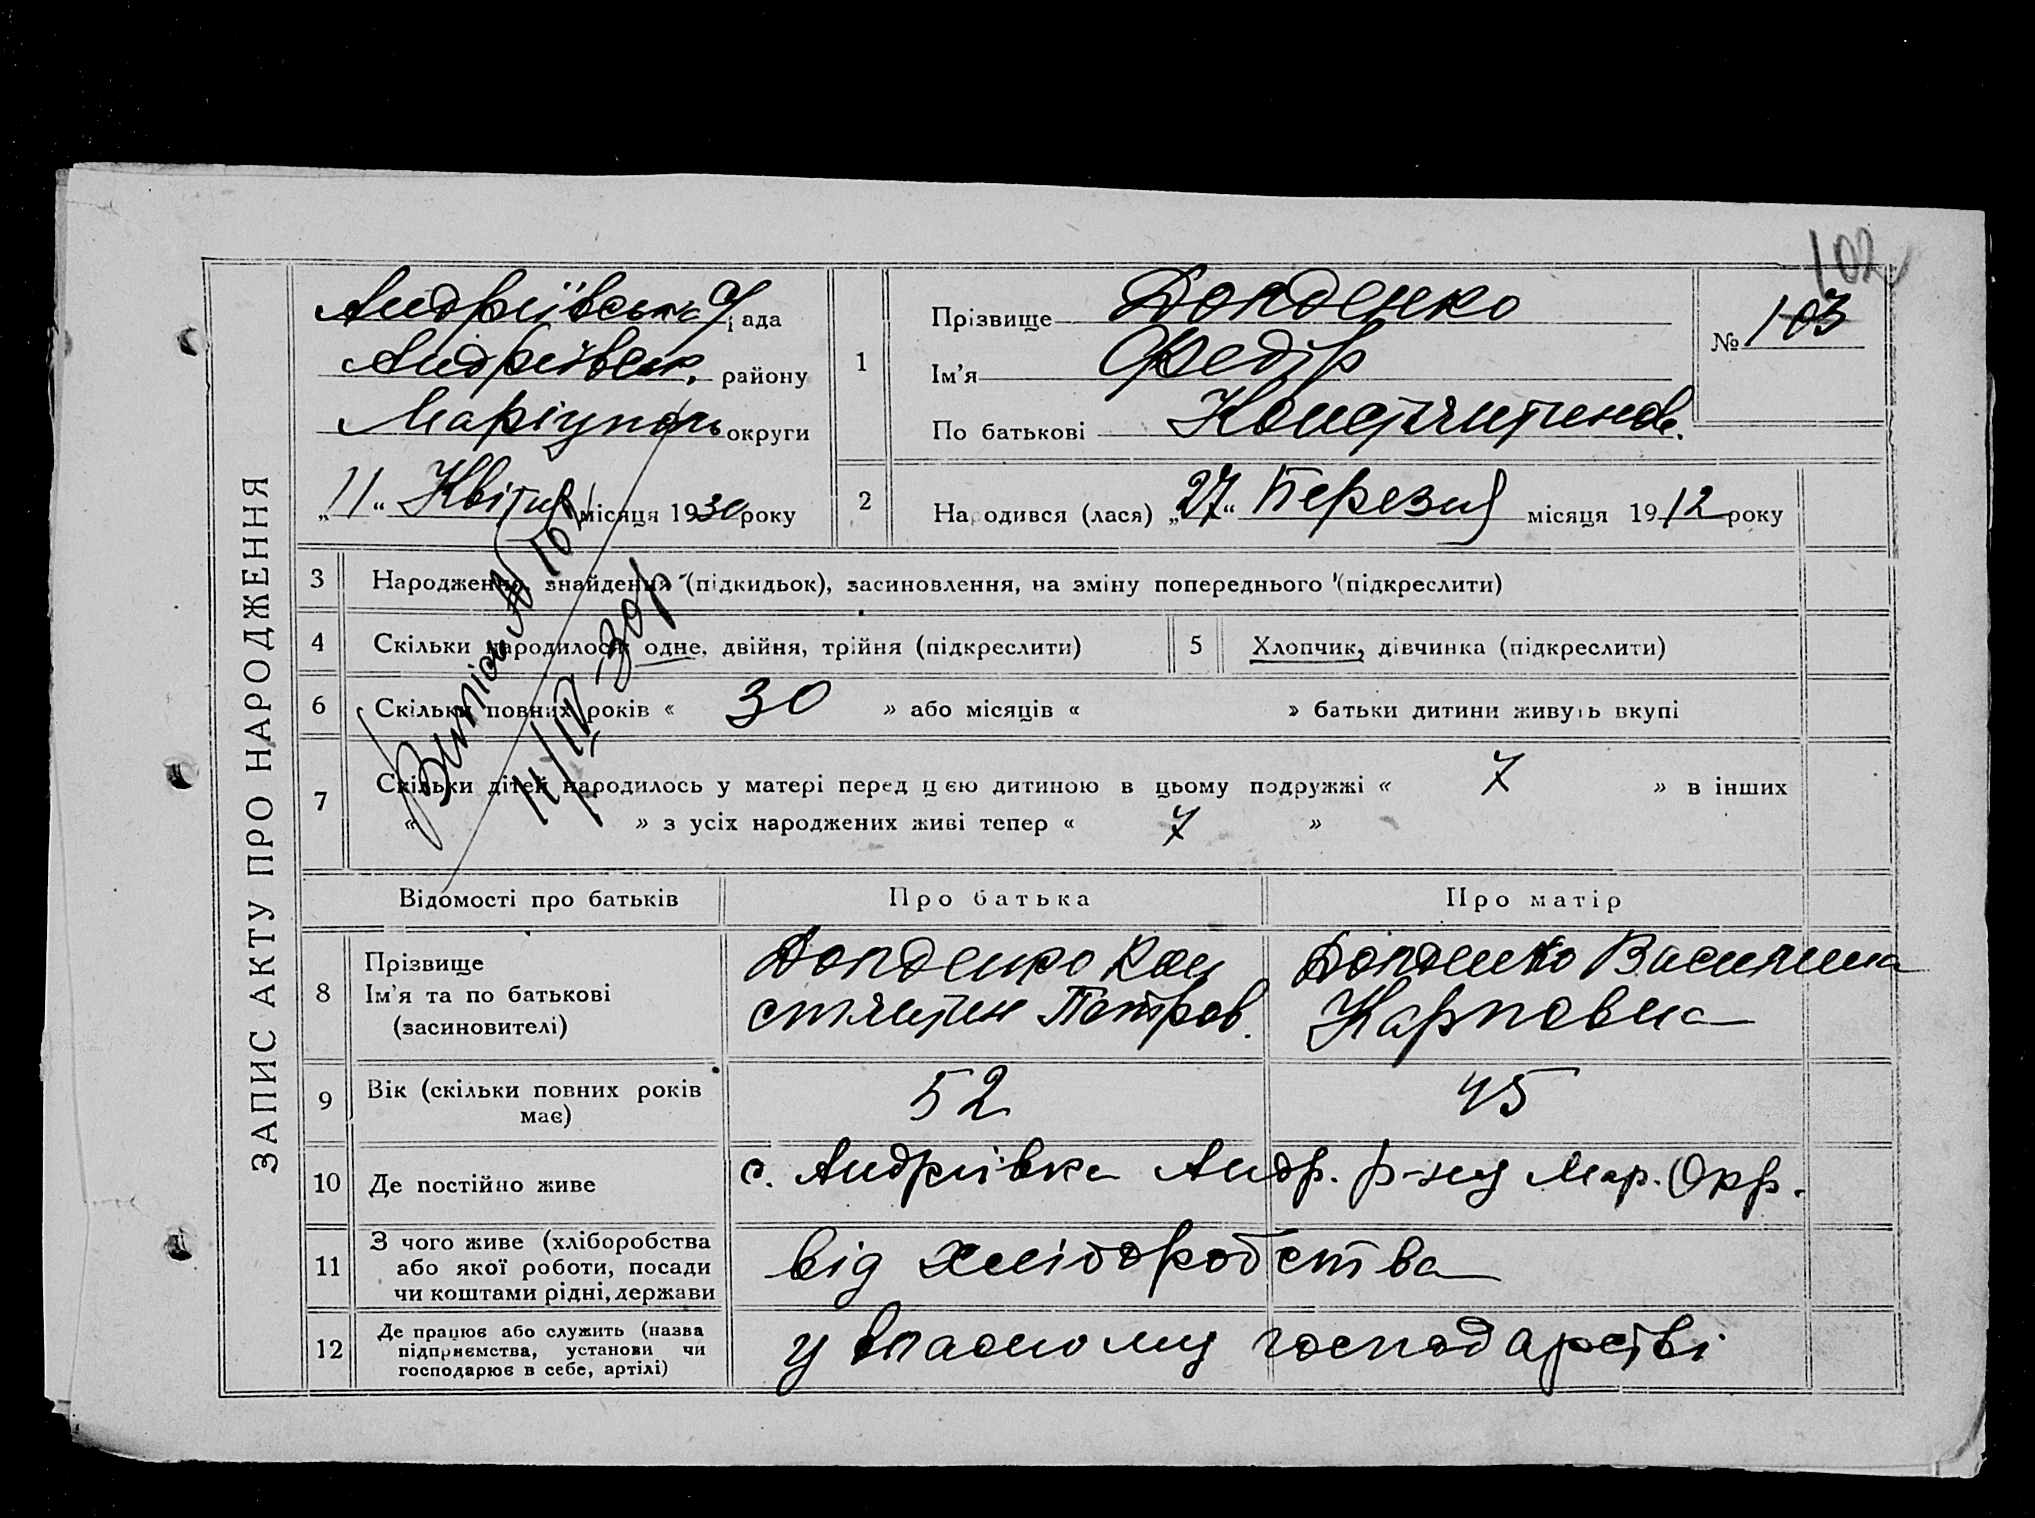 ЗАПИС АКТУ ПРО НАРОДЖЕННЯ
102
Андріївська рада
Андріївськ. району
Маріуполь округи
„11“ Квітня місяця 1930 року
1
Прізвище Долденко
Ім'я Федір
По батькові Константинов.
№ 103
2
Народився (лася) „27“ Березня місяця 1912 року
3 Народження, знайдення (підкидьок), засиновлення, на зміну попереднього (підкреслити)
4 Скільки народилося: одне, двійня, трійня (підкреслити)
5 Хлопчик, дівчинка (підкреслити)
6 Скільки повних років « 30 » або місяців « » батьки дитини живуть вкупі
7 Скільки дітей народилось у матері перед цією дитиною в цьому подружжі « 7 » в інших
« » з усіх народжених живі тепер « 7 »
Випис №
11/IV 30 р
Відомості про батьків Про батька Про матір
8 Прізвище
Ім'я та по батькові
(засиновителі)
Долденко Кон
стянтин Петров.
Долденко Василина
Карповна
9 Вік (скільки повних років
має)
52 45
10 Де постійно живе с. Андріївка Андр. р-ну Мар. Окр.
11 З чого живе (хліборобства
або якої роботи, посади
чи коштами рідні, держави
від хліборобства
12 Де працює або служить (назва
підприємства, установи чи
господарює в себе, артілі)
у власному господарстві